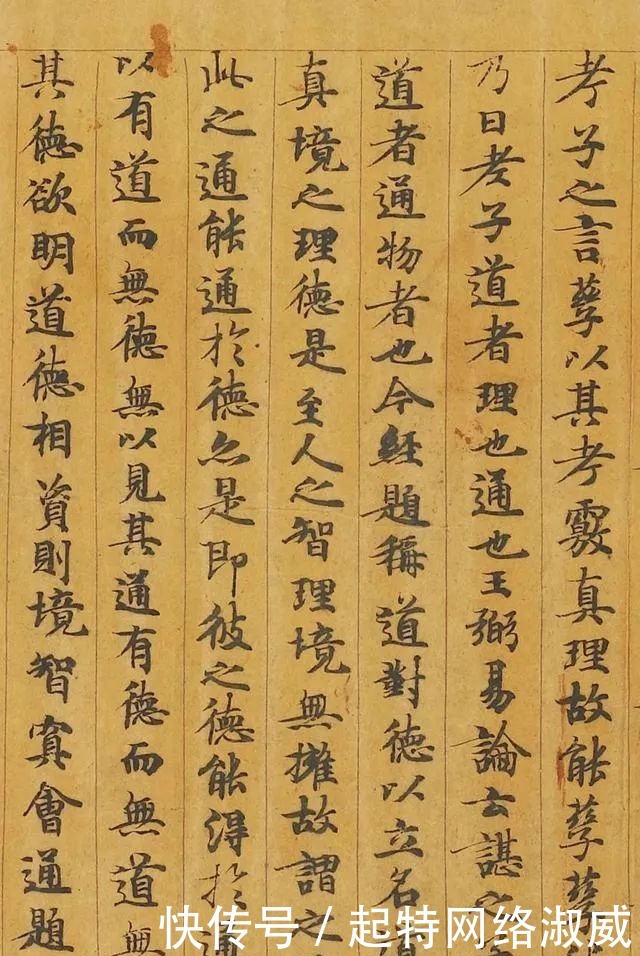 考子之言孳以其考覈真理故能孳孳
乃曰老子道者理也通也王弼易論云諶之
道者通物者也今經題稱道對德以立名
真境之理德是至人之智理境無擁故謂之
此之通能通於德亦是即彼之德能得於通
以有道而無德無以見其通有德而無道無
其德欲明道德相資則境智冥會通題
快传号/起特网络淑威